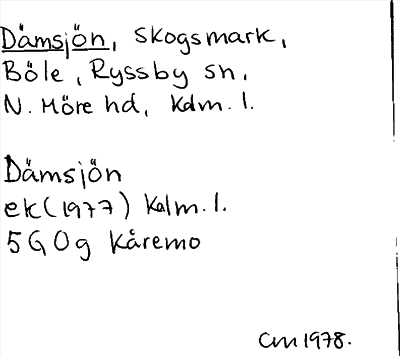 Dämsjön, Skogsmark,
Böle, Ryssby sn,
N. Möre hd, Kalm. l.
Dämsjön
ek (1977) Kalm. l.
5G0g Kåremo
CM 1978.